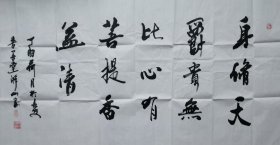 身脩天
爵貴無
比心有
菩提香
益清
丁酉荷月於